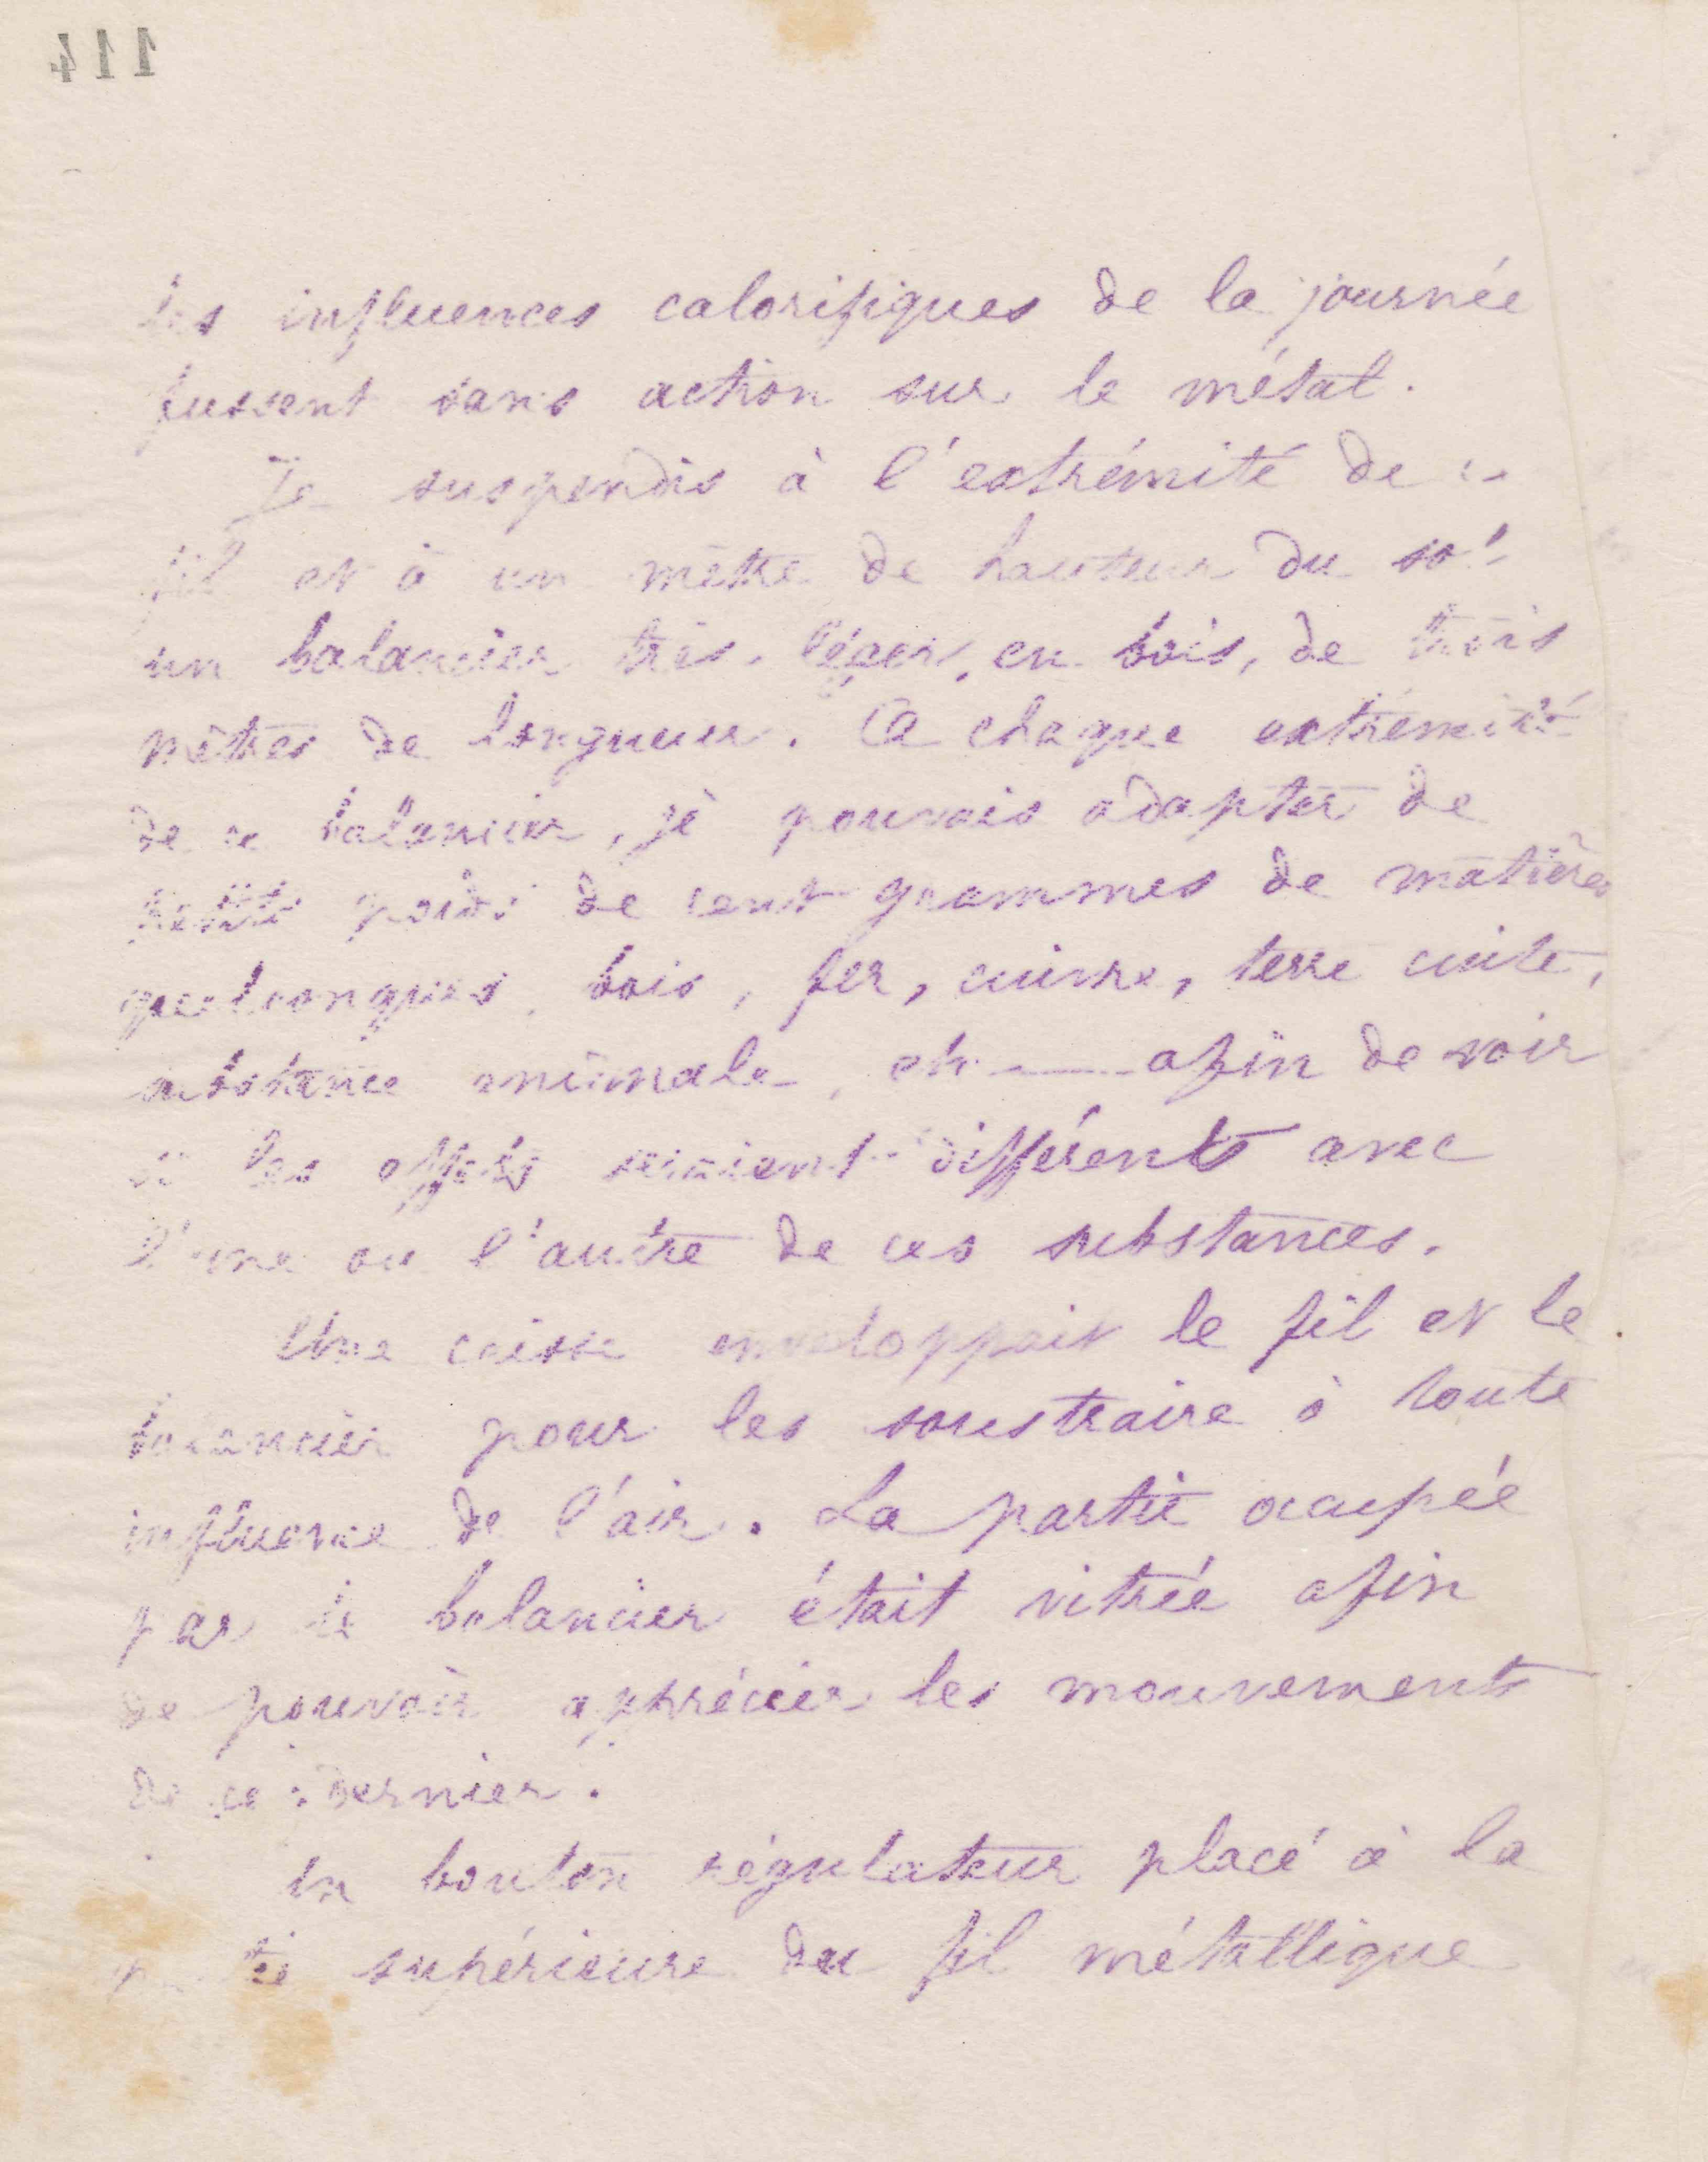 114
les influences calorifiques de la journée
fussent sans action sur le métal.
Je suspendis à l'extrémité de ce
fil et à un mètre de hauteur du sol
un balancier très léger, en bois, de trois
mètres de longueur. A chaque extrémité
de ce balancier, je pouvais adapter de
petits poids de cent grammes de matières
quelconques, bois, fer, cuivre, terre cuite,
substance animale, etc afin de voir
si les effets seraient différents avec
l'une ou l'autre de ces substances.
Une caisse enveloppait le fil et le
balancier pour les soustraire à toute
influence de l'air. La partie occupée
par le balancier était vitrée afin
de pouvoir apprécier les mouvements
de ce dernier.
Un bouton régulateur placé à la
partie supérieure du fil métallique